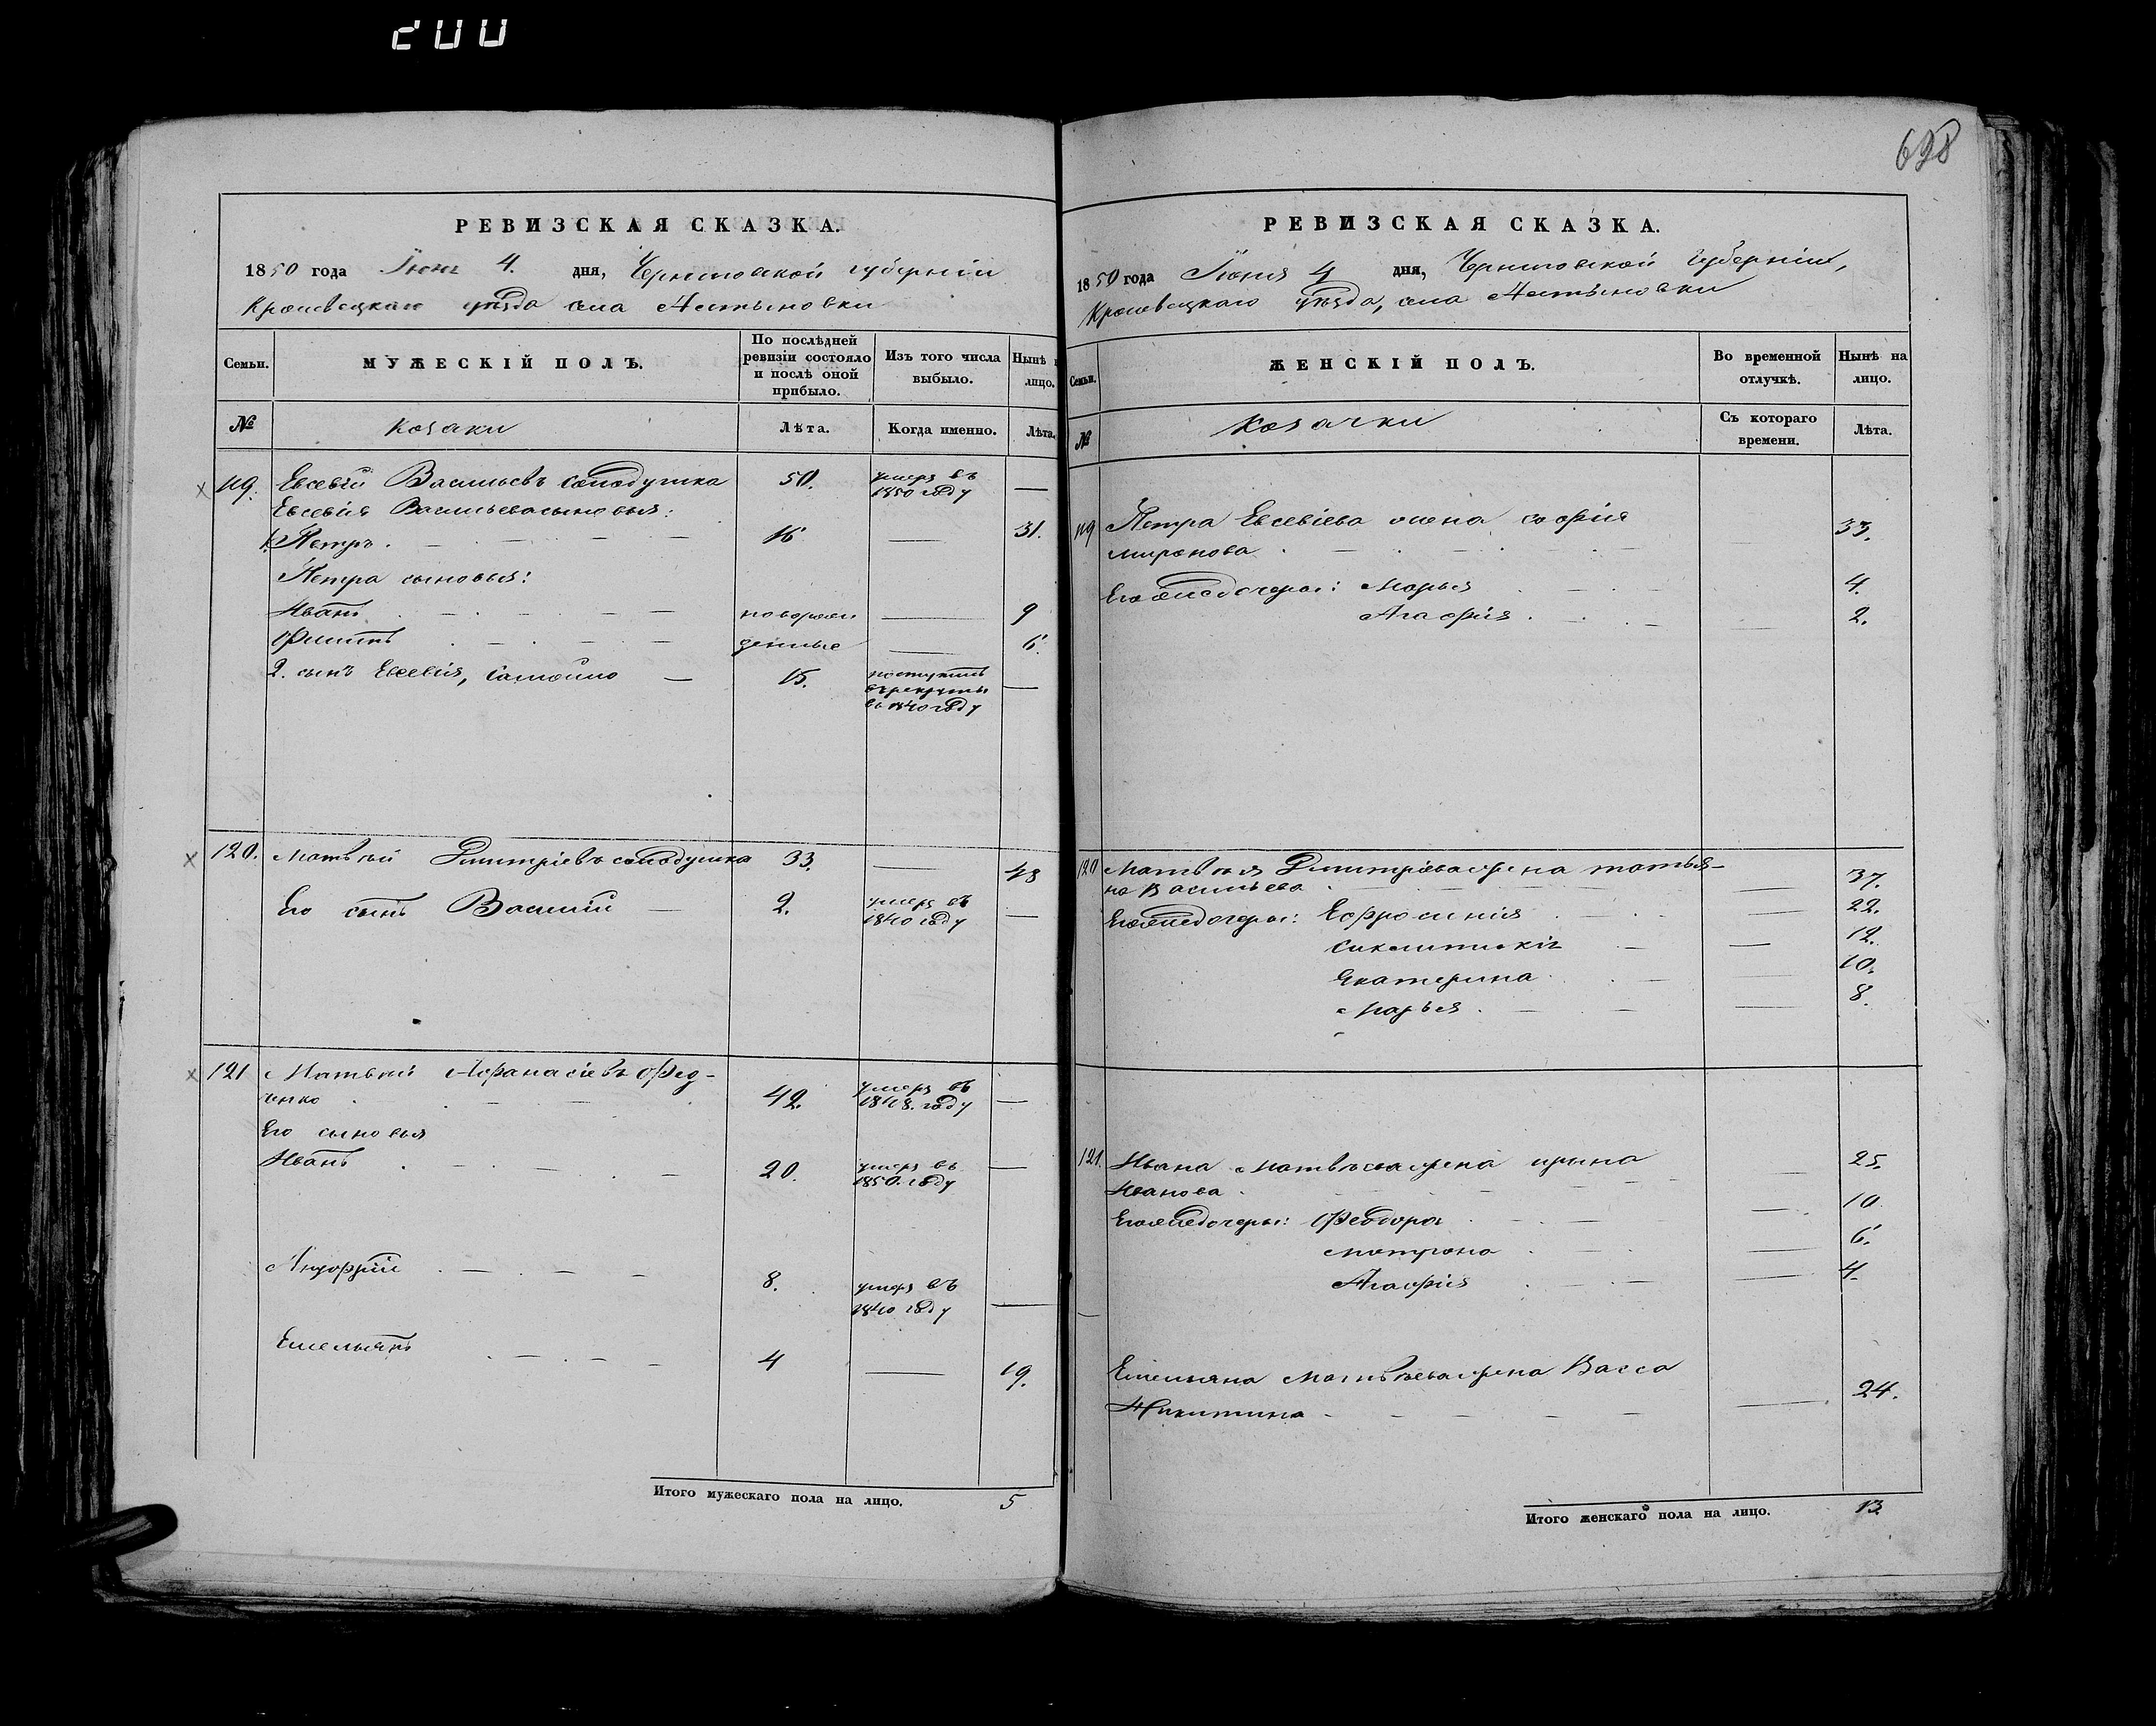 200
698
РЕВИЗСКАЯ СКАЗКА.
1850 года Іюня 4. дня, Черниговской губерніи
Кролевецкаго уѣзда села
Семьи.
МУЖЕСКІЙ ПОЛЪ.
По послѣдней ревизіи состояло и послѣ оной прибыло.
Изъ того числа выбыло.
Нынѣ на лицо.
№
Козаки
Лѣта.
Когда именно.
Лѣта.
119. Евсевій Васильевъ 50. умеръ въ 1850 году —
Евсевія Васильева сыновья:
1. Петръ . — 16 — 31.
Петра сыновья:
Иванъ . — новорож — 9
Филипъ . — денные — 6.
2. сынъ Евсевія, Самойло — 15. поступилъ въ рекруты въ 1840 году —
120. Матвѣй Дмитріевъ 33. — 48
Его сынъ Василій — 2. умеръ въ 1840 году —
121 Матвѣй Афанасіевъ Фед-
ченко . — 42. умеръ въ 1848. году —
Его сыновья
Иванъ . — 20. умеръ въ 1850. году —
8. умеръ въ 1840 году —
Емельянъ . — 4 — 19.
Итого мужескаго пола на лицо. 5
РЕВИЗСКАЯ СКАЗКА.
1850 года Іюня 4 дня, Черниговской Губерніи,
Кролевецкаго уѣзда, села
Семьи.
ЖЕНСКІЙ ПОЛЪ.
Во временной отлучкѣ.
Нынѣ на лицо.
№
Козачки
Съ котораго времени.
Лѣта.
119 Петра Евсевіева жена Софія
Миронова . — 33.
Его дочери: Марья . — 4.
Агафія . — 2.
120 Матвѣя Дмитріева жена Татья-
на Васильева . — 37.
Его дочери: Ефросинія . — 22.
12.
Екатерина . — 10.
Марья . — 8.
121. Ивана Матвѣева жена Ирина
Иванова . — 25.
Его дочери: Феодора . — 10
Матрона . — 6.
Агафія . — 4.
Емельяна Матвѣева жена Васса
Никитина — 24.
Итого женскаго пола на лицо. 13